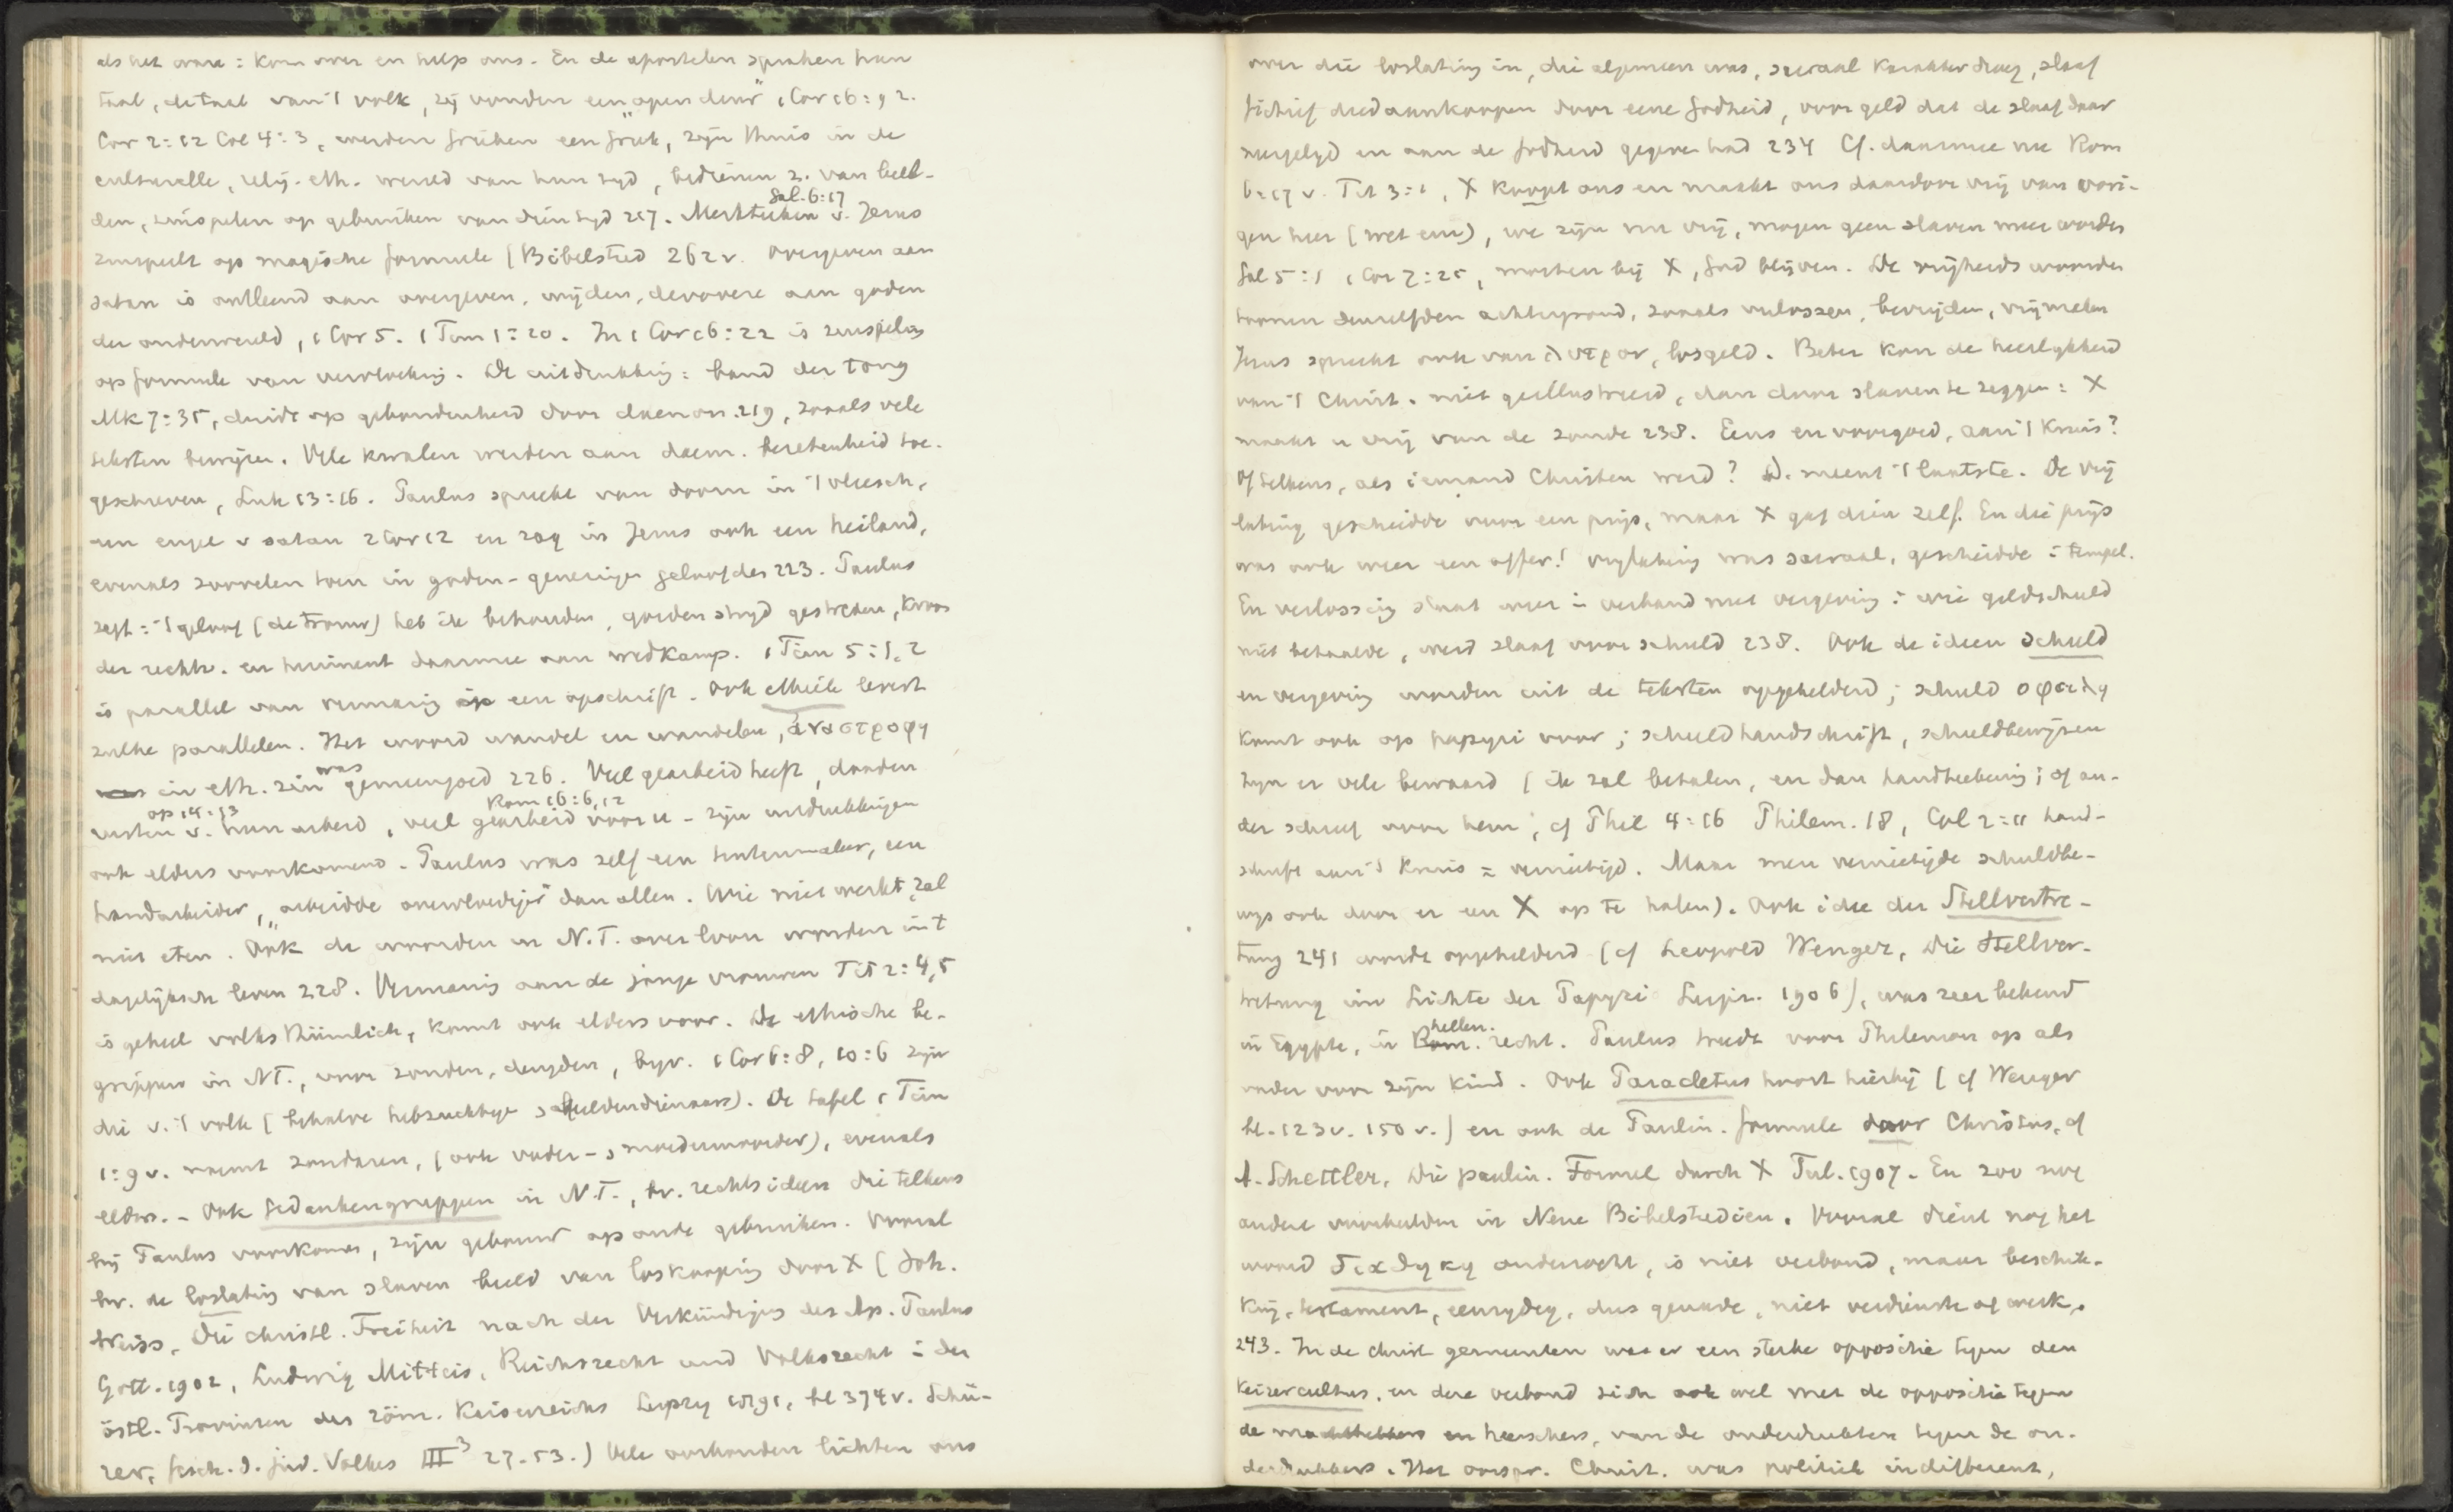 als het ware: kom over en help ons. En de apostelen spraken hun
taal, de taal van 't volk, zij vonden een "open deur" 1 Cor 16:9 2.
Cor 2:12 Col 4:3, werden Grieken een Griek, zijn thuis in de
culturelle, relig. eth. wereld van hun tyd, bedienen z. van beel-
den, zinspelen op gebruiken van dien tyd 217. Merkteeken v. Jezus Gal. 6:17
zinspeelt op magische formule (Bibelstud 262v. Overgeven aan
satan is ontleend aan overgeven, wijden, devovere aan goden
der onderwereld, 1 Cor 5. 1 Tim 1:20. In 1 Cor 16:22 is zinspeling
op formule van vervloeking. De uitdrukking: band der tong
Mk 7:35, duidt op gebondenheid door daemon 219, zooals vele
teksten bewijzen. Vele kwalen werden aan daem. bezetenheid toe-
geschreven, Luk 13:16. Paulus spreekt van doorn in 't vleesch,
een engel v satan 2 Cor 12 en zag in Jezus ook een heiland,
evenals zoovelen toen in goden-genezingen geloofden 223. Paulus
zegt: 't geloof (de trouw) heb ik behouden, goeden stryd gestreden, kroon
der rechtv. en herinnert daarmee aan wedkamp. 1 Tim 5:1,2
is parallel van vermaning op een opschrift. Ook ethiek levert
zulke parallelen. Het woord wandel en wandelen, ἀναστροφη
in eth. zin was gemeengoed 226. Veel gearbeid heeft, daarden
rusten v. hun arbeid op 14:13, veel gearbeid voor u Rom 16:6,12 - zijn uitdrukkingen
ook elders voorkomend. Paulus was zelf een tentenmaker, een
handarbeider, "arbeidde overvloediger" dan allen. Wie niet werkt, zal
niet eten. Ook de woorden in N.T. over loon worden in 't
dagelijksch leven 228. Vermaning aan de jonge vrouwen Tit 2:4,5
is geheel volksthümlich, komt ook elders voor. De ethische be-
grippen in NT., voor zonden, deugden, byv. 1 Cor 6:8, 10:6 zijn
die v. 't volk (behalve hebzuchtige en beeldendienaars). De tafel 1 Tim
1:9v. noemt zondaren, (ook vader- en moedermoorder), evenals
elders. - Ook Gedankengruppen in N.T., bv. rechtsideen die telkens
bij Paulus voorkomen, zijn gebouwd op oude gebruiken. Vooral
bv. de loslating van slaven beeld van loskooping door X (Joh.
Weiss, Die christl. Freiheit nach der Verkündigung des Ap. Paulus
Gött. 1902, Ludwig Mitteis, Reichsrecht und Volksrecht in der
östl. Provinzen des röm. Kaiserreichs Leipzig 1891, bl 374v. Schü-
rer, Gesch. d. jüd. Volkes III³ 27. 53.) Vele oorkonden lichten ons
over die loslating in, die algemeen was, sacraal karakter droeg, slaaf
fictief deed aankoopen door eene Godheid, voor geld dat de slaaf daar
neergelegd en aan de godheid gegeven had 234 Cf. daarmee nu Rom
6:17 v. Tit 3:1, X koopt ons en maakt ons daardoor vrij van vori-
gen heer (wet enz), we zijn nu vrij, mogen geen slaven meer worden
Gal 5:1 1 Cor 7:25, moeten bij X, God blijven. De vrijheidswoorden
toonen denzelfden achtergrond, zooals verlossen, bevrijden, vrijmaken
Jezus spreekt ook van λυτρον, losgeld. Beter kon de heerlykheid
van 't Christ. niet geillustreerd, dan door slaven te zeggen: X
maakt u vrij van de zonde 238. Eens en voorgoed, aan 't Kruis?
Of telkens, als iemand Christen werd? D. meent 't laatste. De vrij
lating geschiedde voor een prijs, maar X gaf dien zelf. En die prijs
was ook weer een offer! vrylating was sacraal, geschiedde in tempel.
En verlossing staat weer in verband met vergeving: wie geldschuld
niet betaalde, werd slaaf voor schuld 238. Ook de ideen schuld
en vergeving worden uit de teksten opgehelderd; schuld οφειλη
komt ook op papyri voor; schuldhandschrift, schuldbewijzen
zijn er vele bewaard (ik zal betalen, en dan handteekening; of an-
der schreef voor hem; cf Phil 4:16 Philem. 18, Col 2:11 hand-
schrift aan 't Kruis = vernietigd. Maar men vernietigde schuldbe-
wys ook door er een X op te halen). Ook idee der Stellvertre-
tung 241 wordt opgehelderd (cf Leopold Wenger, Die Stellver-
tretung im Lichte der Papyri Leipz. 1906), was zeer bekend
in Egypte, in hellen. recht. Paulus treedt voor Philemon op als
vader voor zijn kind. Ook Paracletus hoort hierbij (cf Wenger
bl. 123v. 150v.) en ook de Paulin. formule door Christus, cf
A. Schettler, Die paulin. Formel durch X Tüb. 1907. En zoo nog
andere voorbeelden in Neue Bibelstudien. Vooral dient nog het
woord διαθηκη onderzocht, is niet verbond, maar beschik-
king, testament, eenzydig, dus genade, niet verdienste of werk,
243. In de christ gemeenten was er een sterke oppositie tegen den
Keizercultus, en deze verbond zich ook wel met de oppositie tegen
de machthebbers en heerschers, van de onderdrukten tegen de on-
derdrukkers. Het oorspr. Christ. was politiek indifferent,